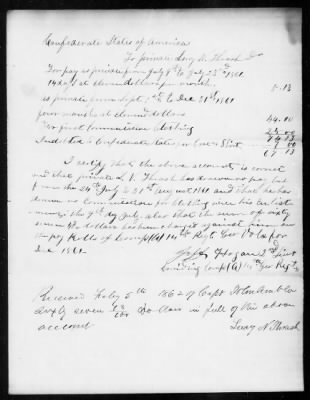 Confederate States of America
To private Levy N. Thrash Dr
For pay as private from July 9th to July 23rd 1861,
14 days at eleven dollars per month 5.13
as private from Sept 1st to Dec 31st 1861
four months at eleven dollars 44.00
For first Commutation clothing 25.00
74.13
Indebted to Confederates for Coat & 7.00
67.13
I certify that the above account is correct
and that private L. N. Thrash has drawn no pay but
from the 24th July to 31st August 1861 and that he has
drawn no Commutation for clothing since his enlist
ment the 9th day July, also that the sum of sixty
seven dollars has been charged against him on
the pay Rolls of Comp (A) 14th Regt Geo Vols for
Dec 1861.
Hogan 2d Lieut
Comp (A) 14th Geo Regt
Received Feby 5th 1862 of Capt
Sixty seven 13/100 Dollars in full of the above
account
Levy N Thrash